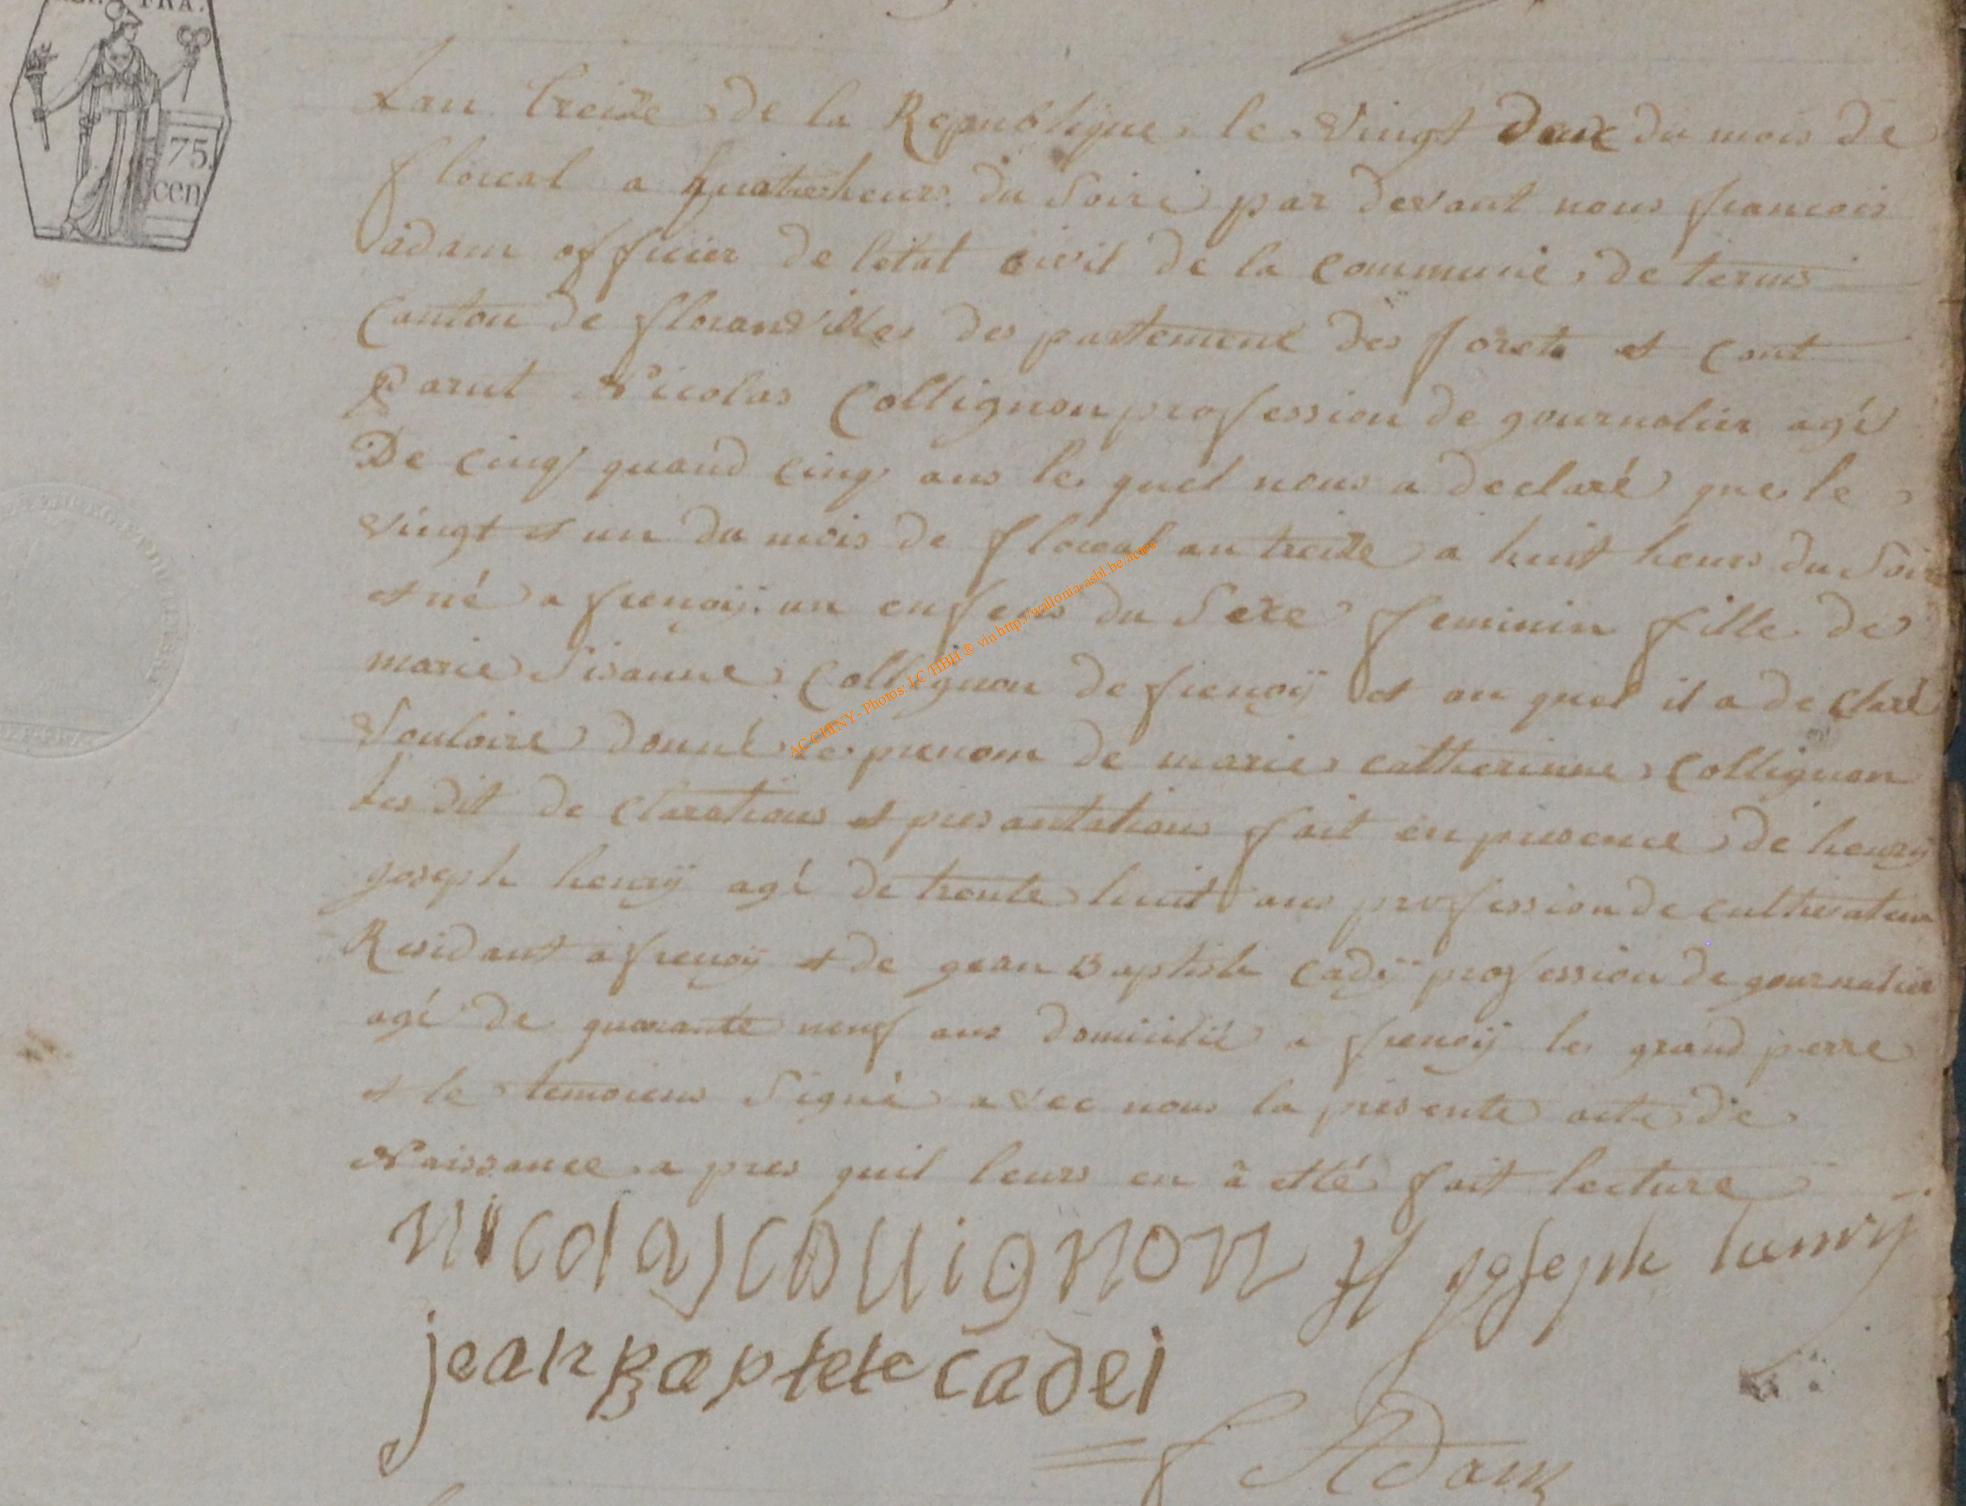 FRA.
75.
cen
Lan treize de la Republique le vingt deux du mois de
floreal a quatre heurs du Soire par devant nous francois
adam officier de letat civil de la commune de termes
Canton de floranville des partement des forets et cont
Parut Nicolas Collignon profession de gournalier agé
De cinq quand cinq ans le quel nous a declaré que le
vingt et un du mois de floreal an treize a huit heurs du Soir
et né a frenoÿ un enfens du Sexe feminin fille de
marie Sisanne Collignon de frenoÿ et au quel il a de claré
Vouloire donné le prenom de marie catherinne Collignon
Les dit de clarations et presantations fait en presence de henrÿ
joseph henrÿ agé de trente huit ans profession de cultivateur
Residant a frenoÿ et de gean Baptiste Cadÿ profession de gournalier
agé de quarante neuf ans domicilié a frenoÿ le grand perre
et le temoiens Signé avec nous la presente acte de
Naissance a pres quil leurs en a etté fait lecture
nicolas collignon H joseph henrÿ
jean Baptete cadei
f Adam
ACCHENY - Photos: LC HBH ® via http://wallonia-asbl.be